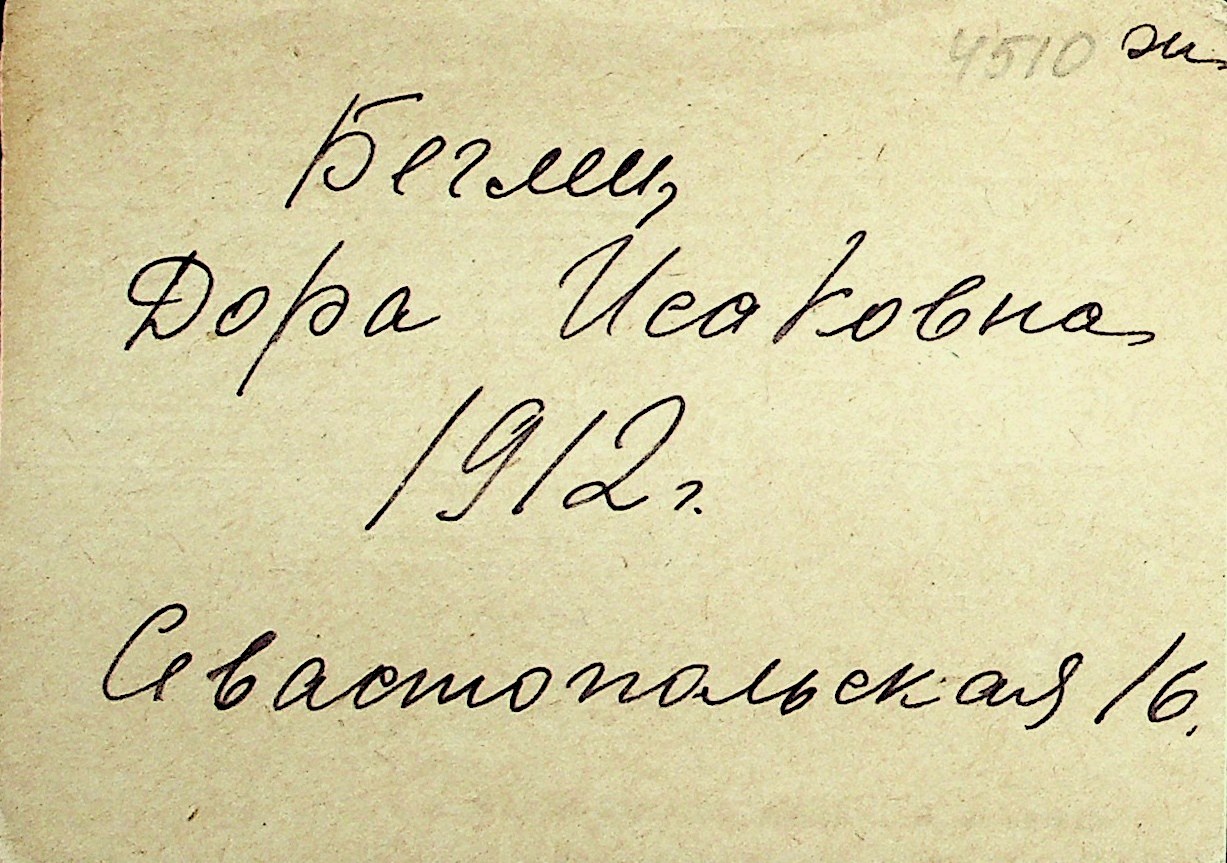 4510 ж.
Беглиц
Дора Исаковна
1912 г.
Севастопольская 16.